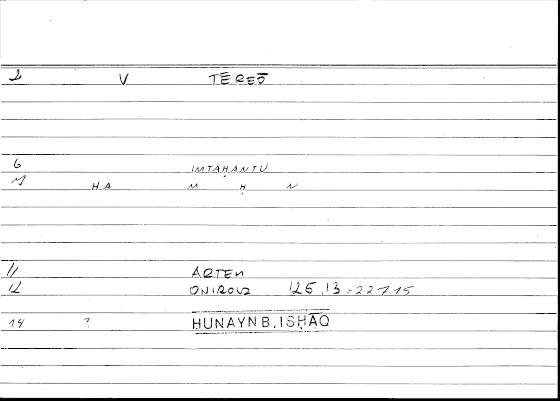 2 V TĒREŌ
6 IMTAḤANTU
M HA M Ḥ N
11 ARTEM
12 ONIROCR 125,13 = 227.15
14 ? ḤUNAYN B. ISḤĀQ